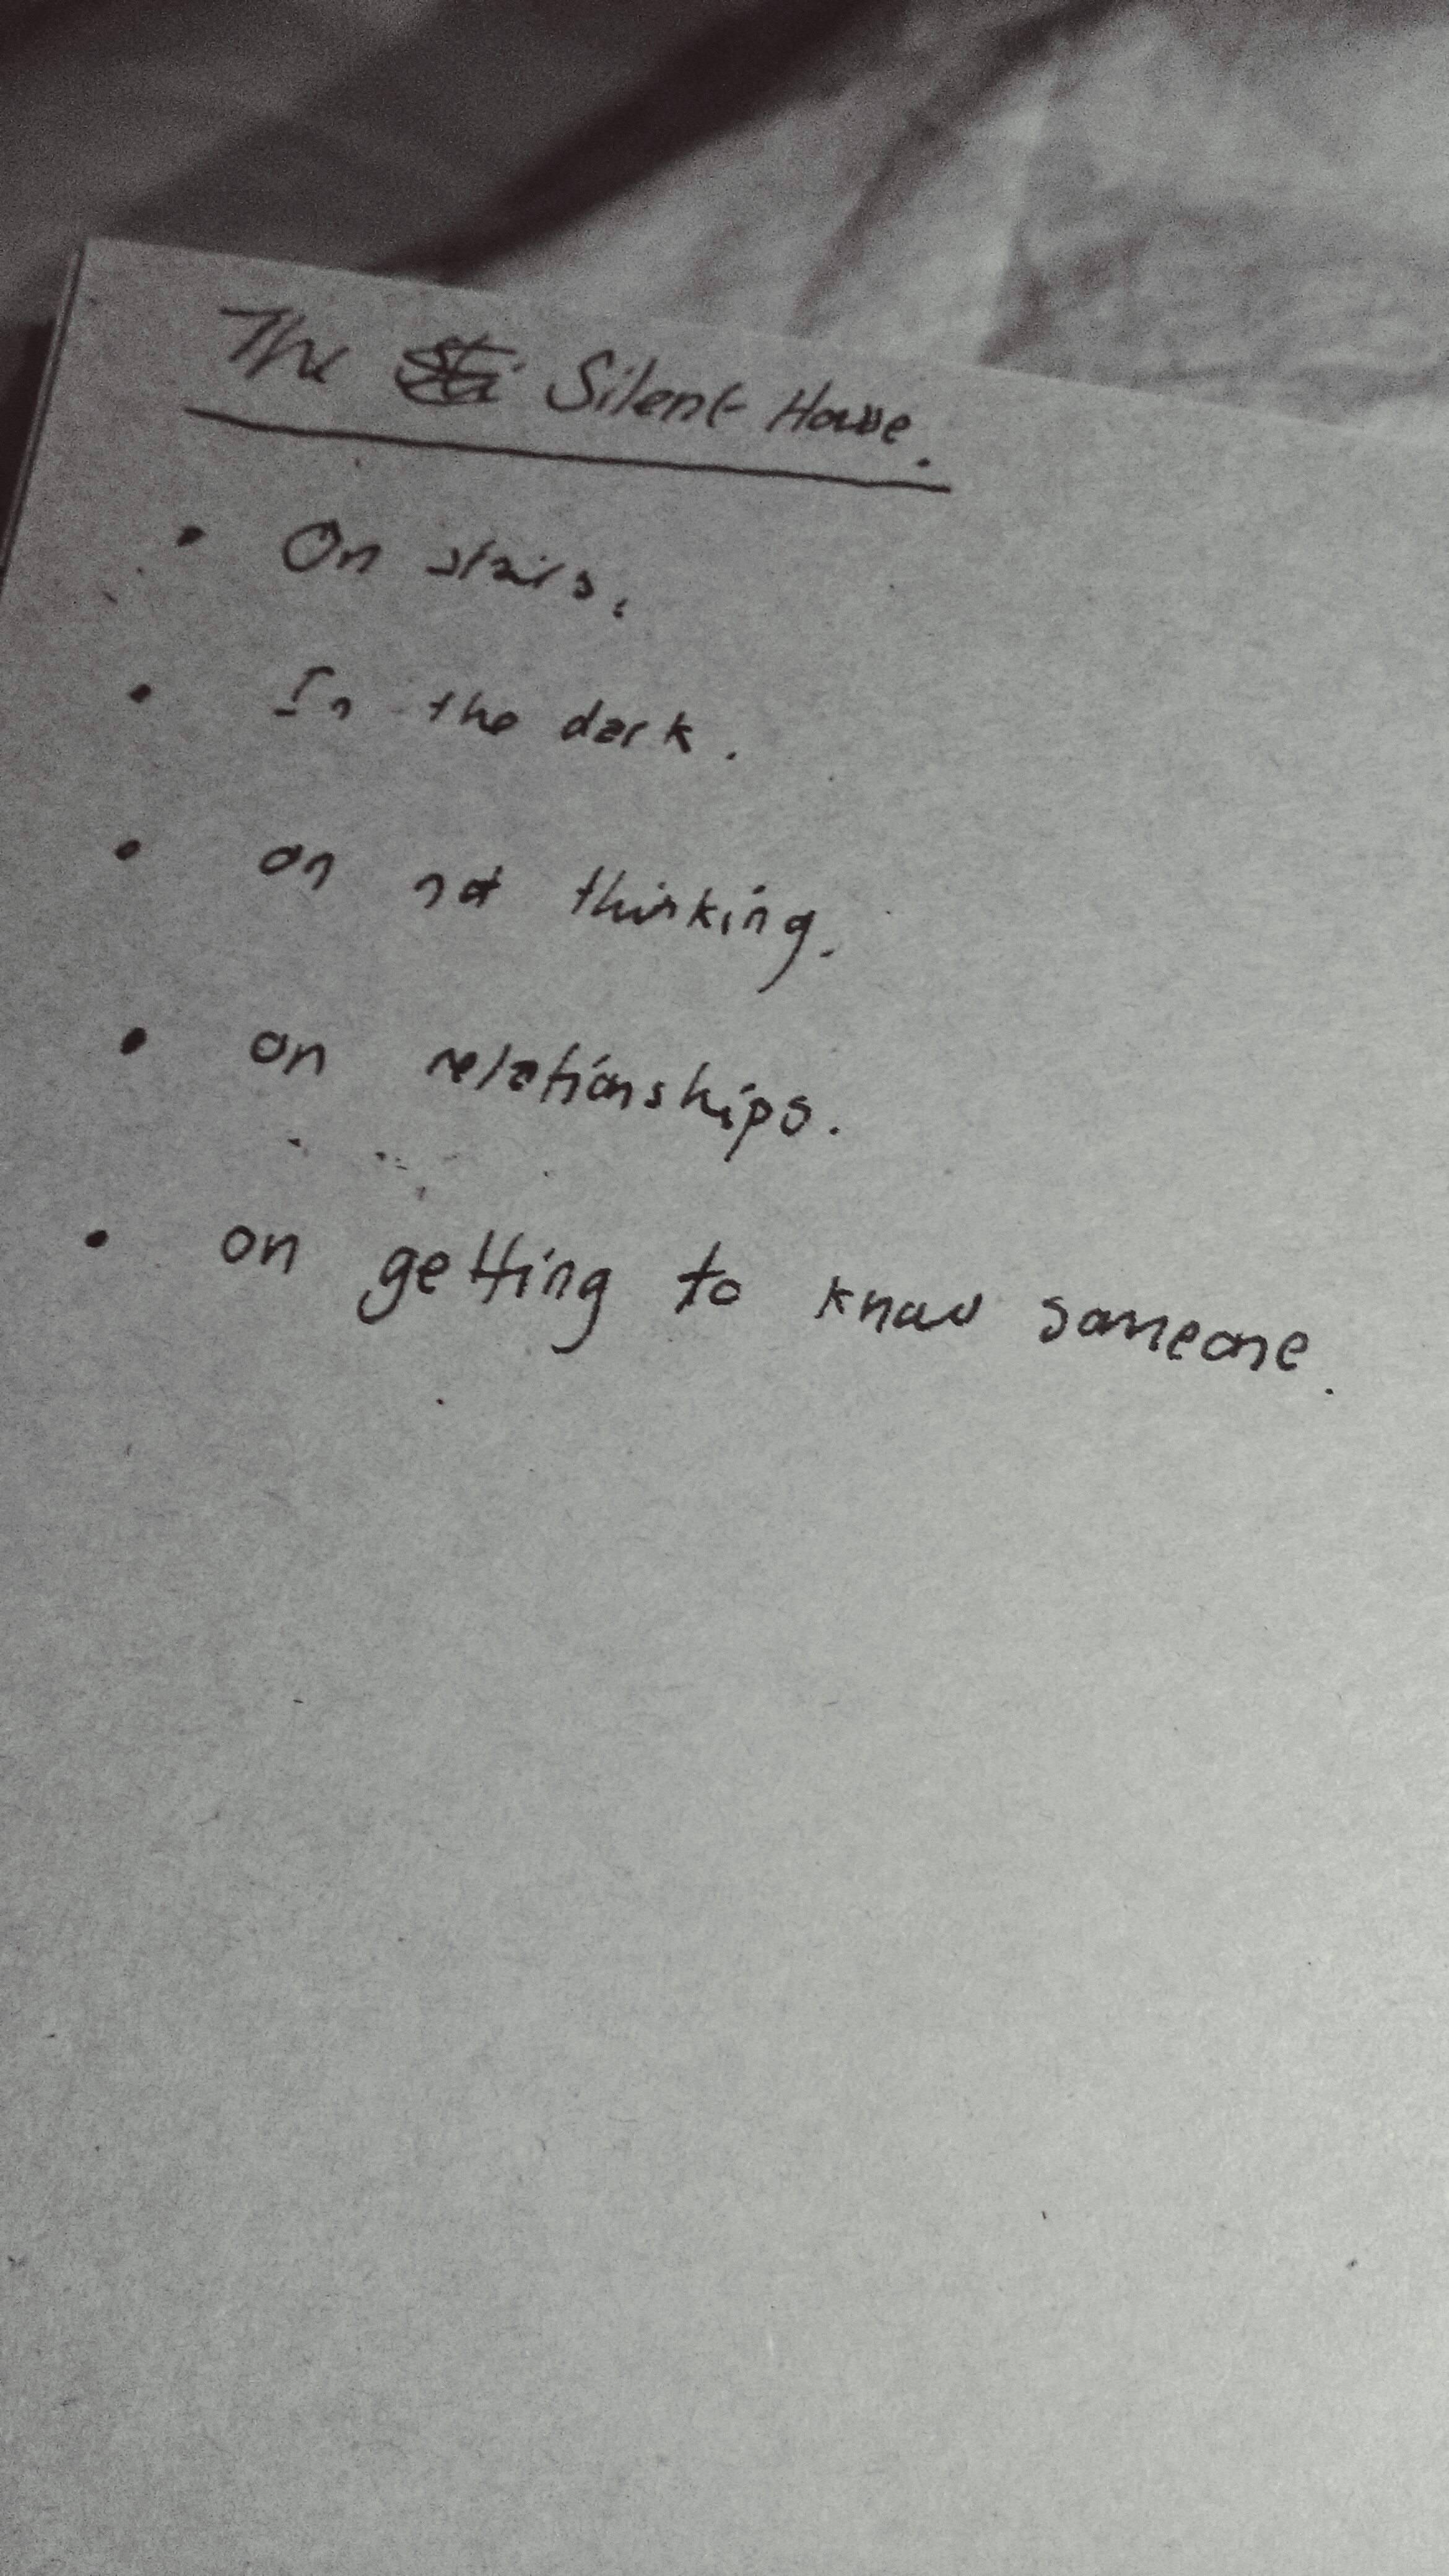 The Silent House.
• On stairs.
• In the dark.
• on not thinking.
• on relationships.
• on getting to know someone.